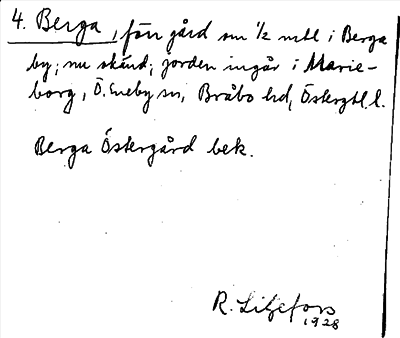 4. Berga, förr gård om 1/2 mtl i Berga
by; nu skänd; jorden ingår i Marie-
borg, Ö. Eneby sn, Bråbo hd, Östergtl. l.
Berga Östergård bek.
R. Liljefors
1928